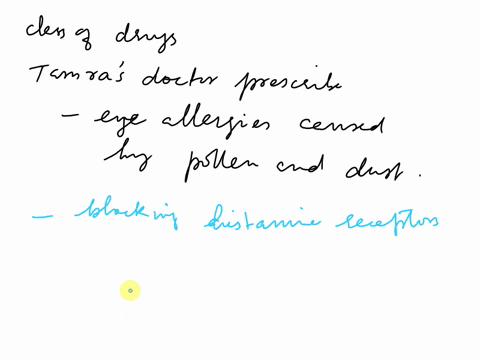 class of drugs
Tamra's doctor prescribe
- eye allergies caused
by pollen and dust.
- blocking histamine receptors